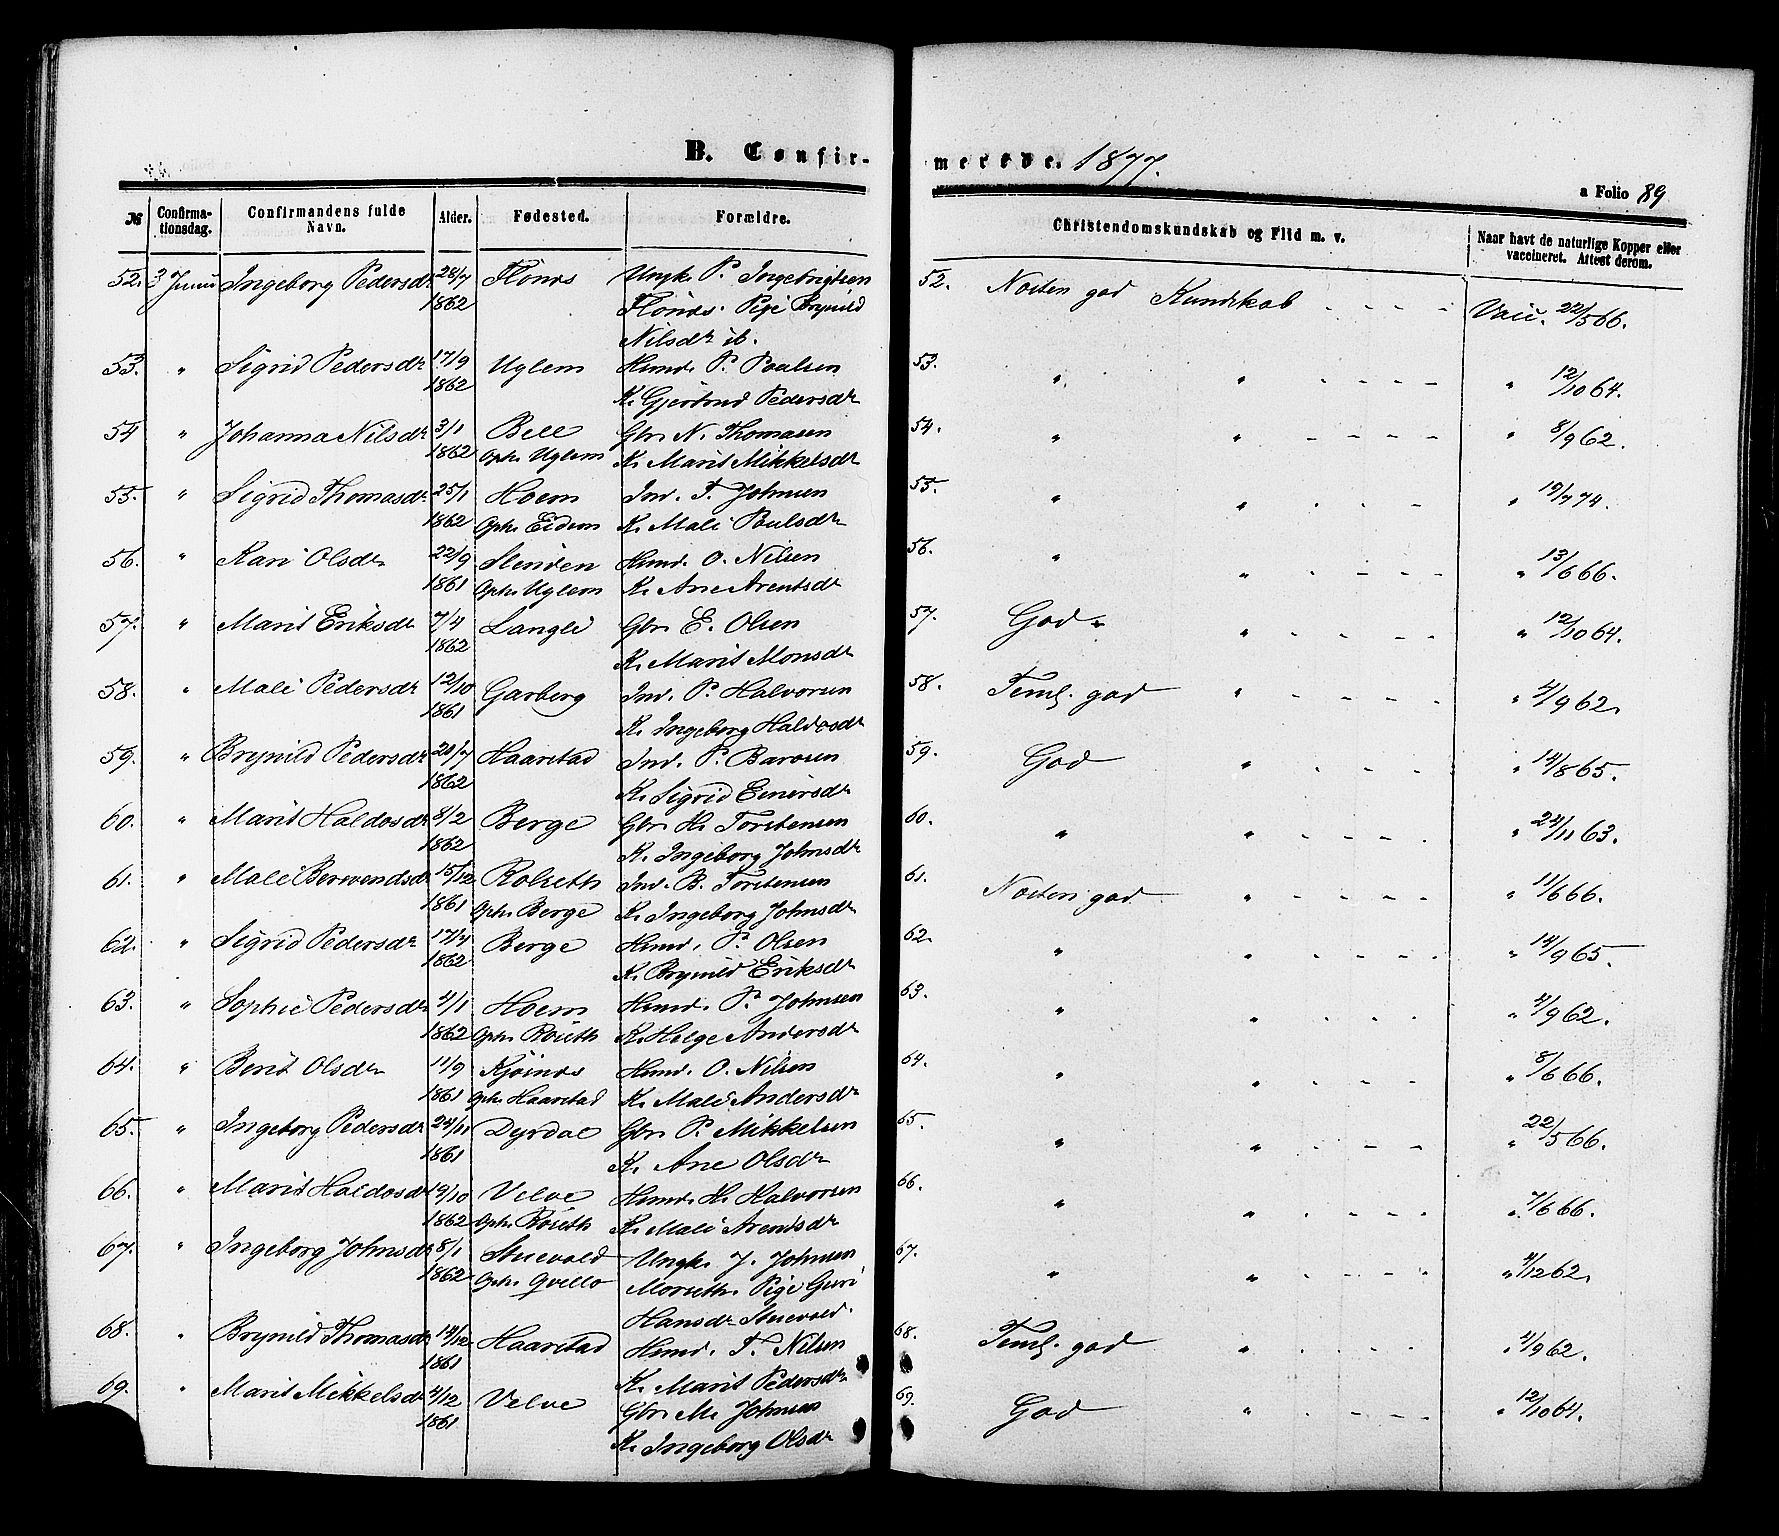 B. Confir-
№ Confirma-tionsdag. Confirmandens fulde Navn. Alder. Fødested. Forældre.
52. 3 Juni Ingeborg Pedersdr 28/7 Flönæs Ungk. P. Ingebrigtsen
1862 Flönæs. Pige Brynild
Nilsdr ib.
53. " Sigrid Pedersdr 17/9 Uglem Huusmd. P. Poulsen
1862 K. Gjertrud Pedersdr
54 " Johanna Nilsdr 3/1 Bell Gbr. N. Thomasen
1862 Oph. Uglem K. Marit Mikkelsdr
55. " Sigrid Thomasdr 25/1 Hoem Ind. T. Johnsen
1862 Oph. Eidem K. Mali Poulsdr
56. " Kari Olsdr 22/9 Slinden Husmd. O. Nilsen
1861 Oph. Uglem K. Ane Arentsdr
57. " Marit Eriksdr 7/4 Langli Gbr E. Olsen
1862 K. Marit Monsdr
58. " Mali Pedersdr 12/10 Garberg Ind. P. Halvorsen
1861 K. Ingeborg Haldosdr
59. " Brynild Pedersdr 20/7 Haarstad Ind. P. Barosen
1862 K. Sigrid Einersdr
60. " Marit Haldosdr 8/2 Berge Gbr H. Torstensen
1862 K. Ingeborg Johnsdr
61. " Mali Berwendsdr 15/12 Rolseth Ind. B. Torstensen
1861 Oph. Berge K. Ingeborg Johnsdr
62. " Sigrid Pedersdr 17/4 Berge Husmd. P. Olsen
1862 K. Brynild Eriksdr
63. " Sophie Pedersdr 4/1 Hoem Husmd. P. Johnsen
1862 Oph. Röseth K. Helge Andersdr
64. " Berit Olsdr 11/9 Kjösnæs Husmd. O. Nilsen
1861 Oph. Haarstad K. Mali Andersdr
65. " Ingeborg Pedersdr 24/11 Dyrdal Gbr P. Mikkelsen
1861 K. Ane Olsdr
66. " Marit Haldosdr 19/10 Velve Husmd. H. Halvorsen
1862 Oph. Röseth K. Mali Arentsdr
67. " Ingeborg Johnsdr 8/1 Stuevold Ungk. J. Johnsen
1862 Oph. Qvello Morseth. Pige Guri
Hansdr Stuevold.
68. " Brynild Thomasdr 14/12 Haarstad Husmd. T. Nilsen
1861 K. Marit Pedersdr
69. " Marit Mikkelsdr 4/12 Velve Gbr. M. Johnsen
1861 K. Ingeborg Olsdr
merede. 1877.
a Folio 89
Christendomskundskab og Flid m. v. Naar havt de naturlige Kopper eller vaccineret. Attest derom.
52. Næsten god Kundskab - - - - Vacc. 22/5 66.
53. " " - - - - " 12/10 64.
54. " " - - - - " 8/9 62.
55. " " - - - - " 19/7 74.
56. " " - - - - " 13/6 66.
57. God " - - - - " 12/10 64.
58. Teml. god " - - - - " 4/9 62.
59. God " - - - - " 14/8 65.
60. " " - - - - " 24/11 63.
61. Næsten god " - - - - " 11/6 66.
62. " " - - - - " 14/9 65.
63. " " - - - - " 4/9 62.
64. " " - - - - " 8/6 66.
65. " " - - - - " 22/5 66.
66. " " - - - - " 7/6 66.
67. " " - - - - " 4/12 62.
68. Teml. god " - - - - " 4/9 62.
69. God " - - - - " 12/10 64.